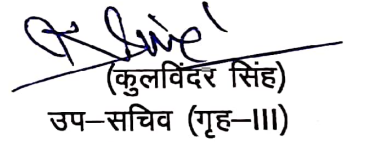 (कुलविंदर सिंह)
उप–सचिव (गृह–III)